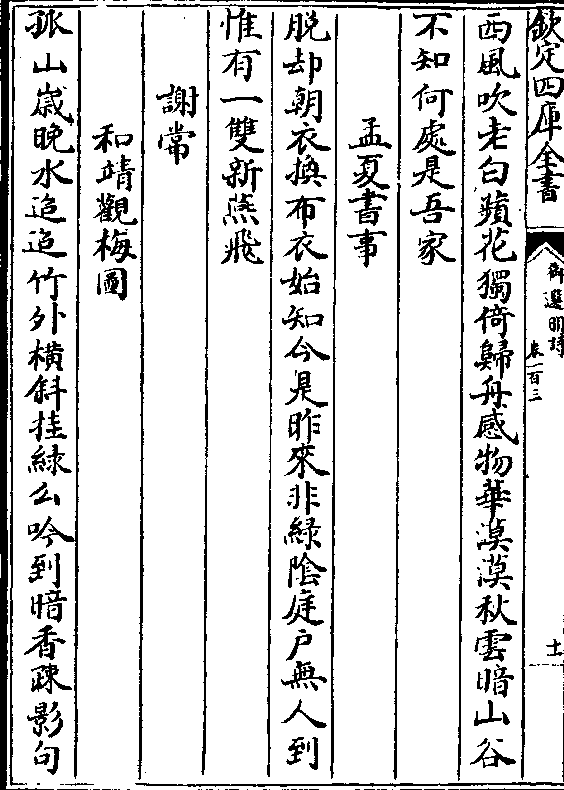 欽定四庫全書
御選明詩
卷一百三
十一
西風吹老白蘋花獨倚歸舟感物華漠漠秋雲暗山谷
不知何處是吾家
孟夏書事
脱却朝衣換布衣始知今是昨來非緑陰庭户無人到
惟有一雙新燕飛
謝常
和靖觀梅圖
孤山嵗晩水迢迢竹外横斜挂緑么吟到暗香疎影句